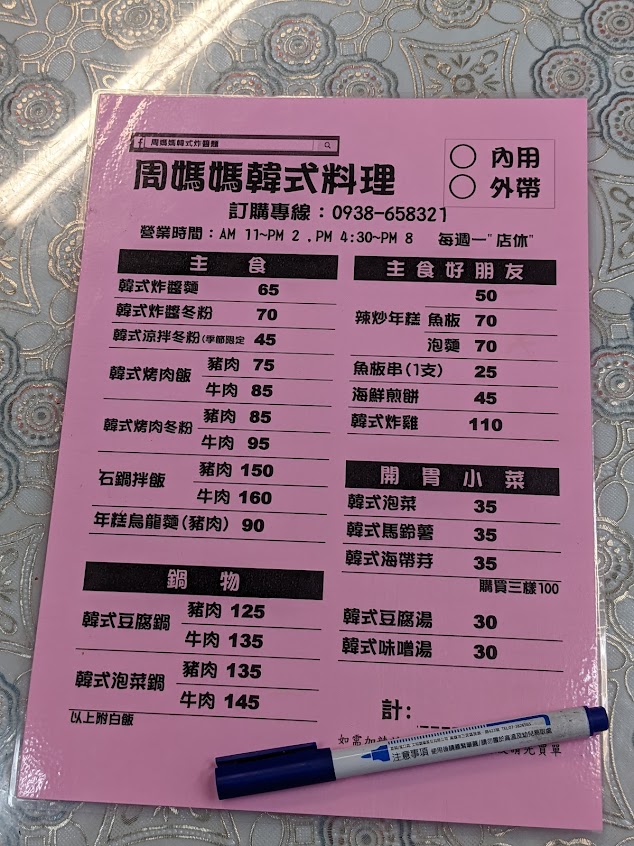 f 周媽媽韓式炸醬麵
周媽媽韓式料理
內用
外帶
訂購專線：0938-658321
營業時間：AM 11~PM 2 . PM 4:30~PM 8 每週一"店休"
主食
韓式炸醬麵 65
韓式炸醬冬粉 70
韓式涼拌冬粉(季節限定 45
韓式烤肉飯 豬肉 75
牛肉 85
韓式烤肉冬粉 豬肉 85
牛肉 95
石鍋拌飯 豬肉 150
牛肉 160
年糕烏龍麵(豬肉) 90
鍋物
韓式豆腐鍋 豬肉 125
牛肉 135
韓式泡菜鍋 豬肉 135
牛肉 145
以上附白飯
主食好朋友
50
辣炒年糕 魚板 70
泡麵 70
魚板串(1支) 25
海鮮煎餅 45
韓式炸雞 110
開胃小菜
韓式泡菜 35
韓式馬鈴薯 35
韓式海帶芽 35
購買三樣100
韓式豆腐湯 30
韓式味噌湯 30
計：
如需加辣
先買單
注意事項